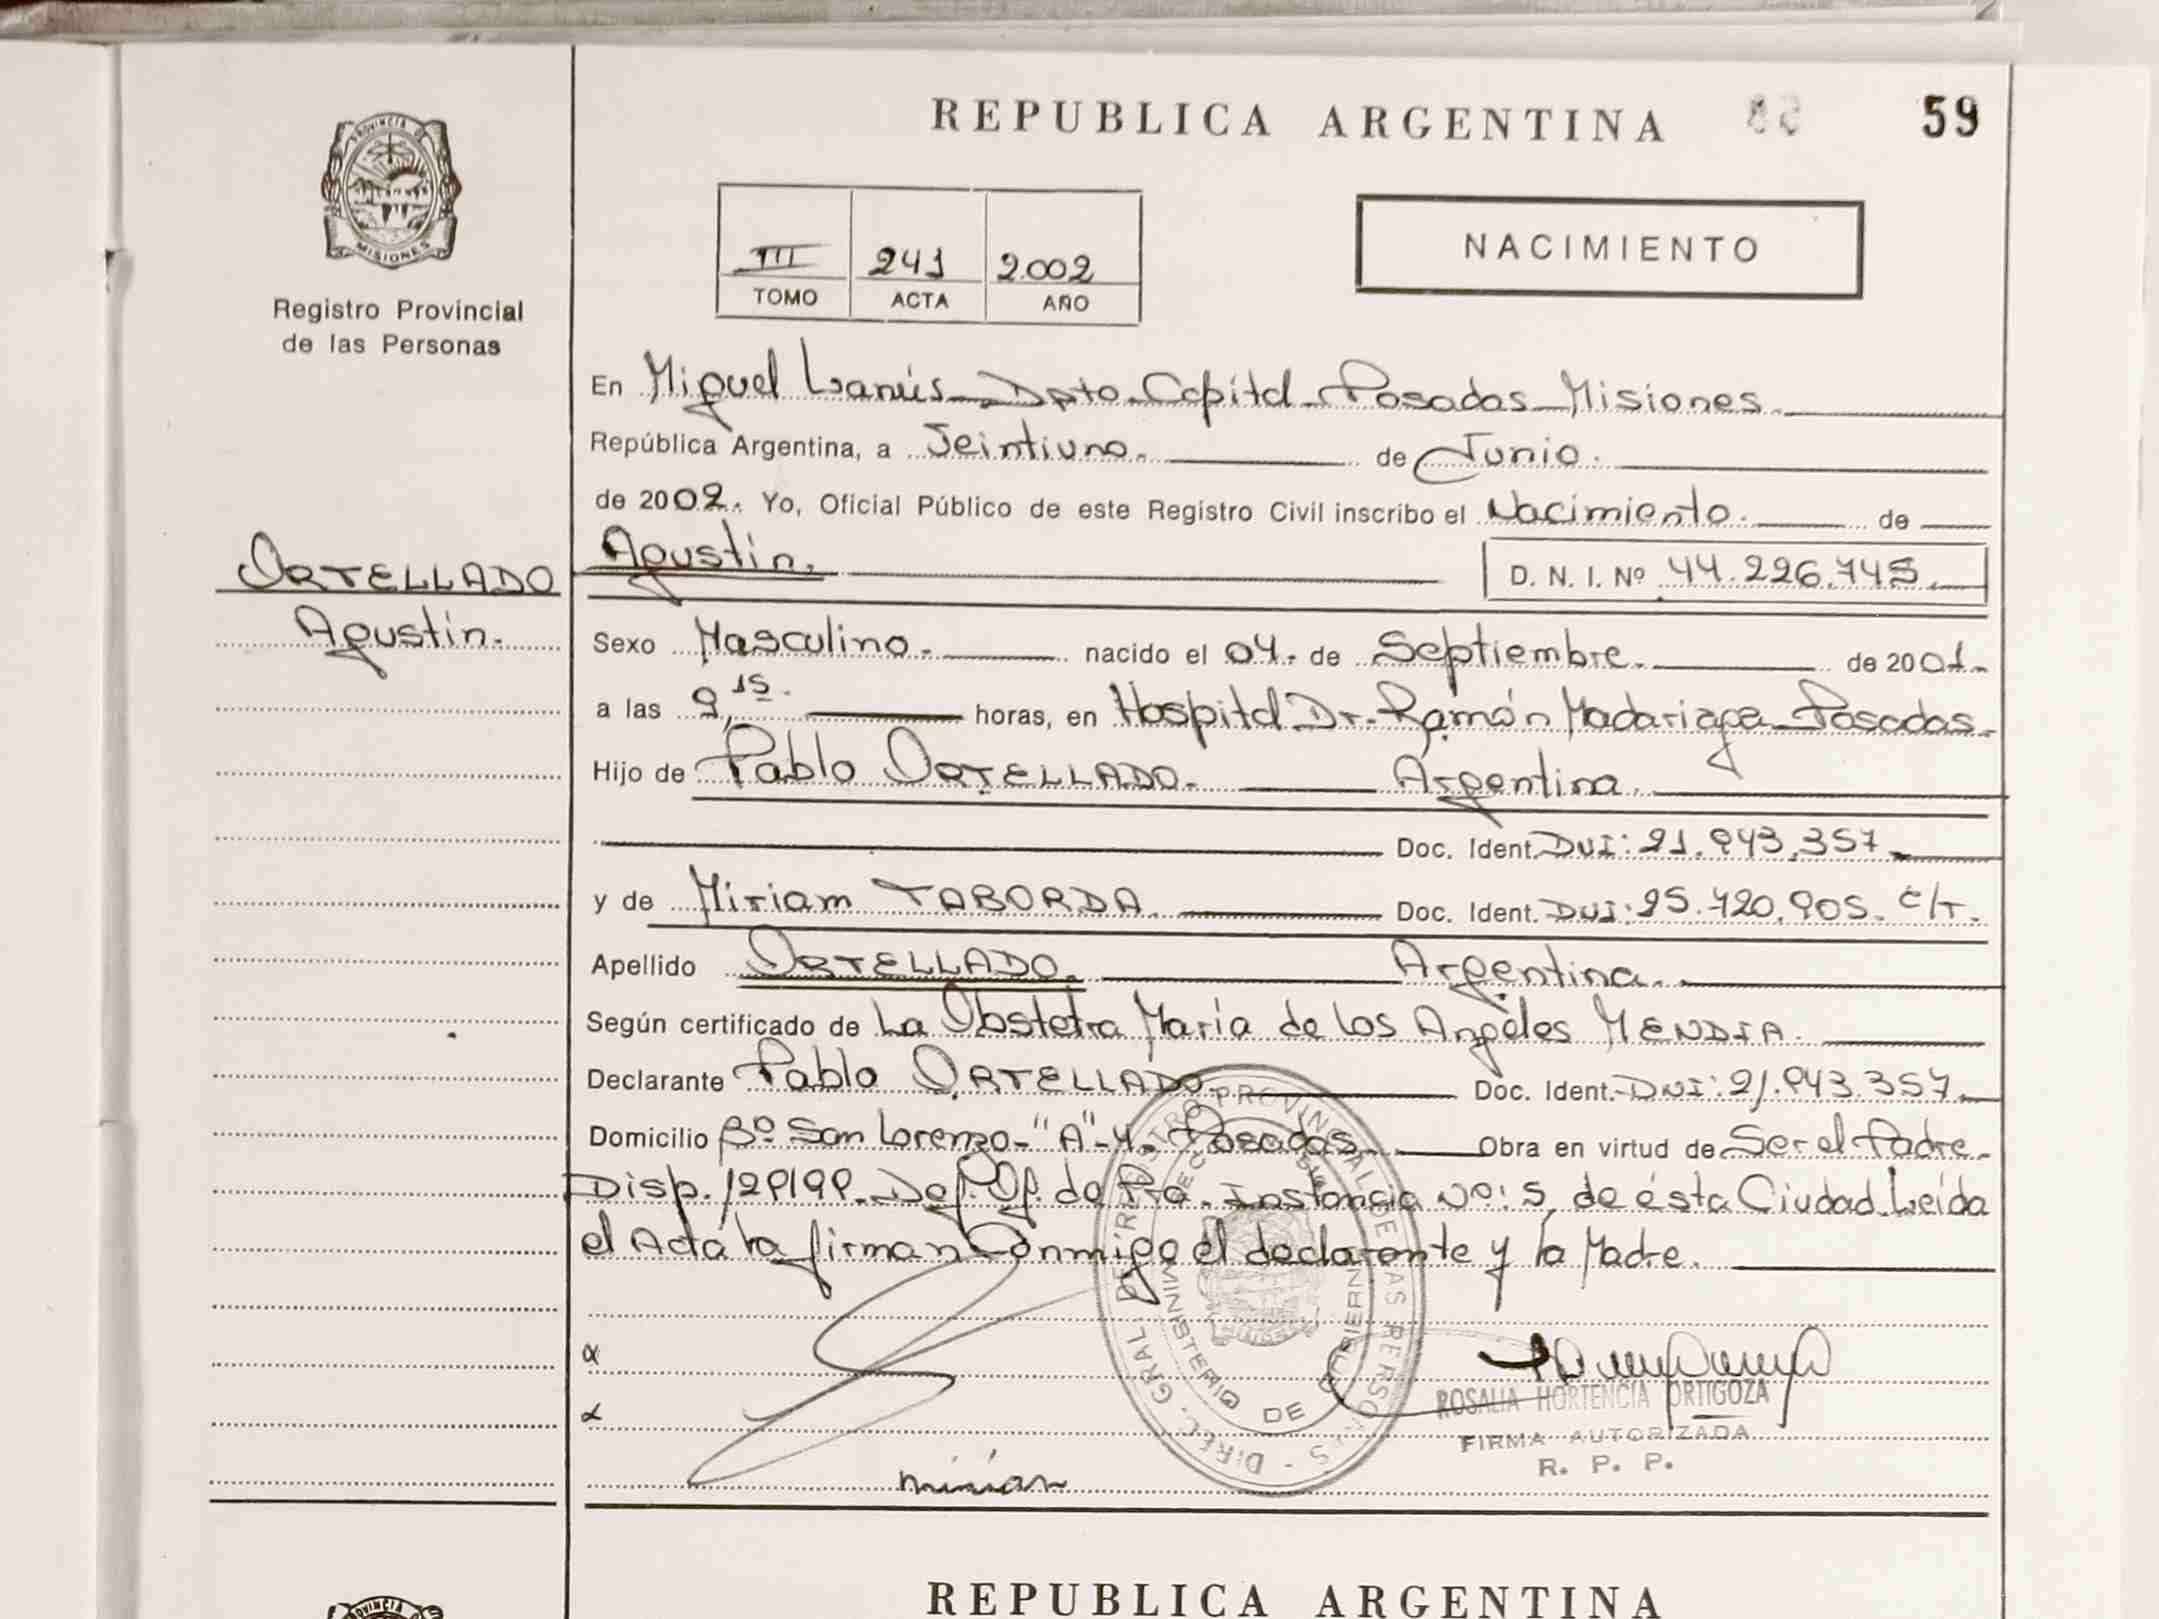 REPUBLICA ARGENTINA 59
PROVINCIA DE MISIONES
Registro Provincial
de las Personas
III 241 2.002
TOMO ACTA AÑO
NACIMIENTO
En Miguel Lanús - Dpto. Capital - Posadas - Misiones.
República Argentina, a Veintiuno. de Junio.
de 2002. Yo, Oficial Público de este Registro Civil inscribo el Nacimiento. de
ORTELLADO Agustín. D. N. I. Nº 44.226.745.
Agustín. Sexo Masculino. nacido el 04. de Septiembre. de 2001.
a las 9,15. horas, en Hospital Dr. Ramón Madariaga - Posadas.
Hijo de Pablo ORTELLADO. Argentina.
Doc. Ident. DNI: 21.943.357
y de Miriam TABORDA. Doc. Ident. DNI: 25.420.905. c/T.
Apellido ORTELLADO. Argentina.
Según certificado de La Obstetra María de los Angeles MENDIA.
Declarante Pablo ORTELLADO. Doc. Ident. DNI: 21.943.357
Domicilio Bº San Lorenzo - "A" - 4. Posadas. Obra en virtud de Ser el Padre.
Disp. 129/99. Def. Of. de Pra. Instancia Nº: 5, de ésta Ciudad. Leída
el Acta la firman Conmigo el declarante y la Madre.
DIREC. GRAL. DE REGISTRO PROVINCIAL DE LAS PERSONAS
MINISTERIO DE GOBIERNO
ROSALIA HORTENCIA ORTIGOZA
FIRMA AUTORIZADA
R. P. P.
Mirian
REPUBLICA ARGENTINA